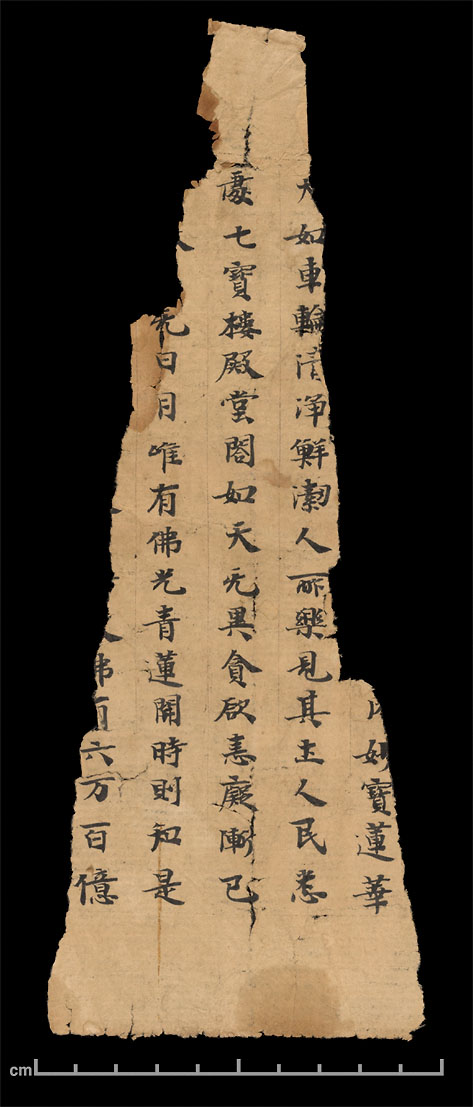 妙寶蓮華
大如車輪清淨鮮潔人所樂見其土人民悉
處七寶樓殿堂閣如天无異貪欲恚癡漸已
无日月唯有佛光青蓮開時則知是
佛有六万百億
cm